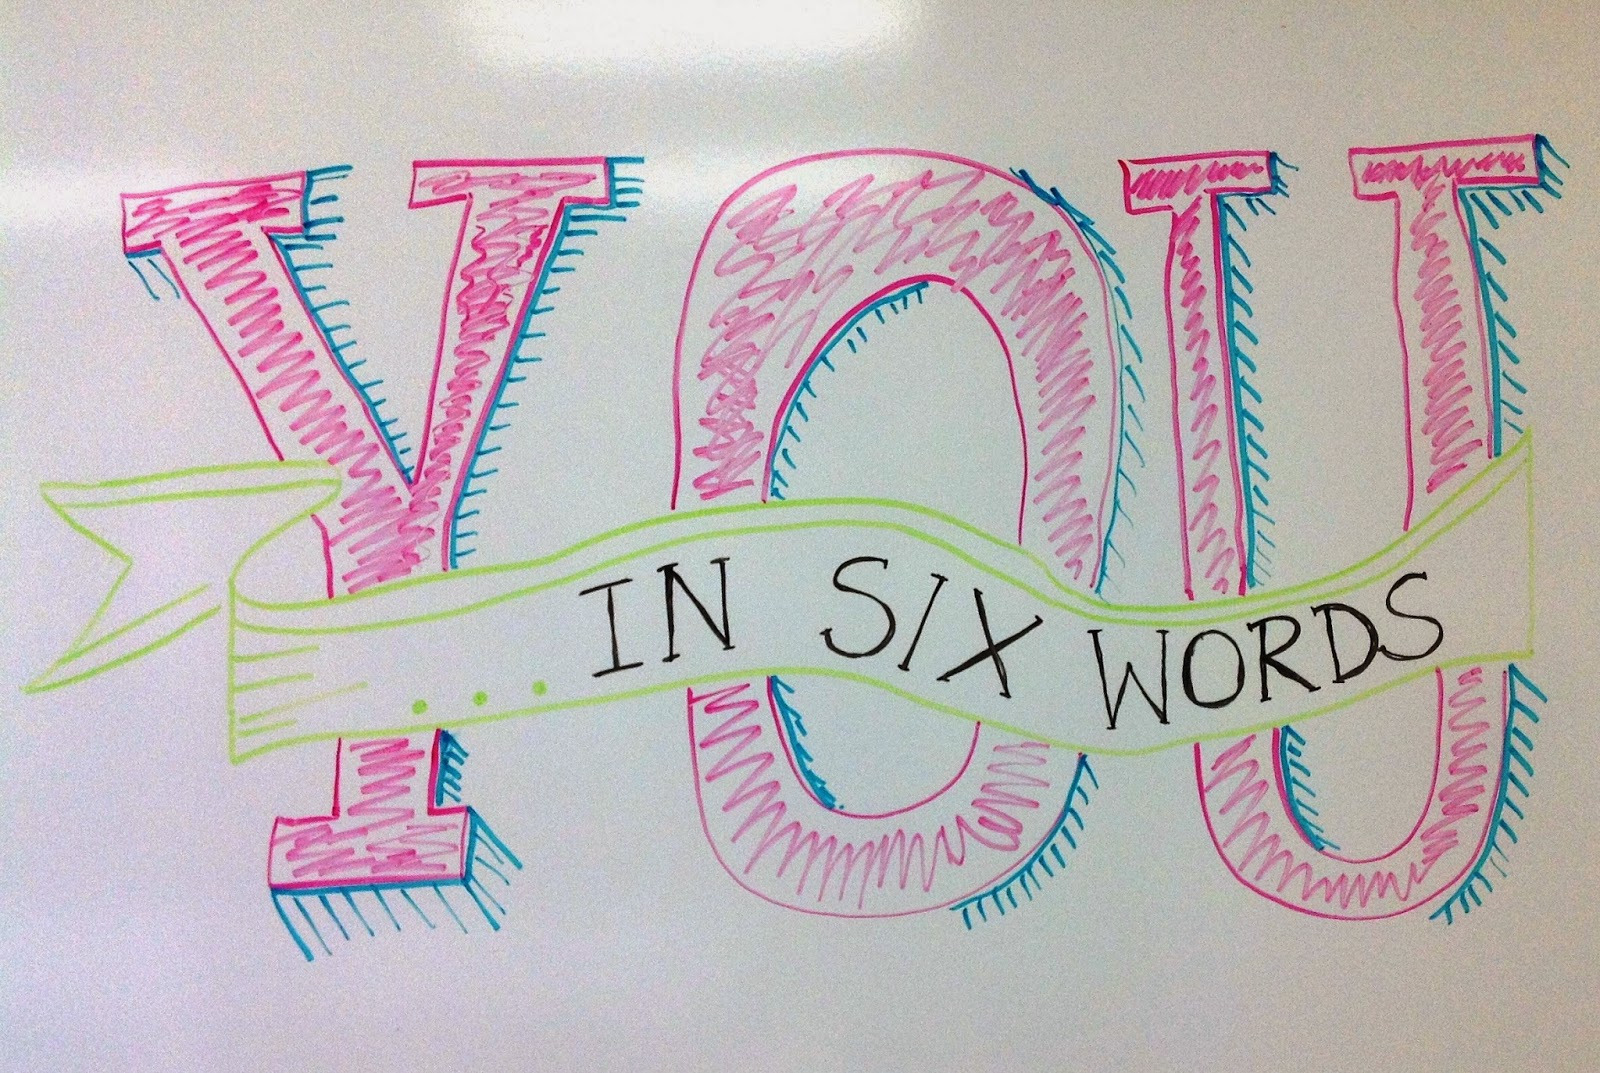 YOU
... IN SIX WORDS